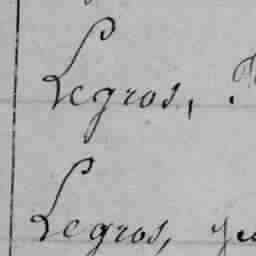 Legros,
Legros,